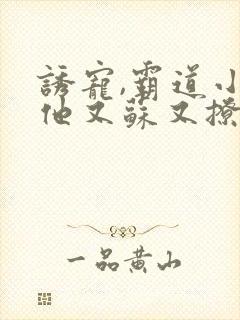 誘寵,霸道小
他又蘇又撩
一品黄山